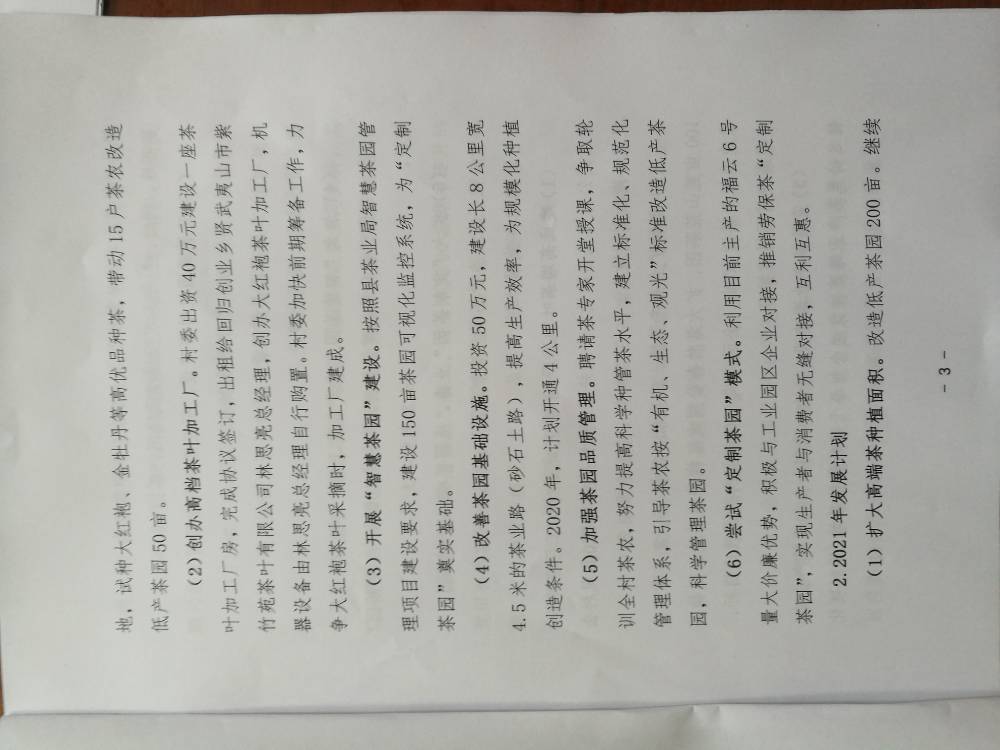 地，试种大红袍、金牡丹等高优品种茶，带动 15 户茶农改造
低产茶园 50 亩。
（2）创办高档茶叶加工厂。村委出资 40 万元建设一座茶
叶加工厂房，完成协议签订，出租给回归创业乡贤武夷山市紫
竹苑茶叶有限公司林思亮总经理，创办大红袍茶叶加工厂，机
器设备由林思亮总经理自行购置。村委加快前期筹备工作，力
争大红袍茶叶采摘时，加工厂建成。
（3）开展“智慧茶园”建设。按照县茶业局智慧茶园管
理项目建设要求，建设 150 亩茶园可视化监控系统，为“定制
茶园”奠实基础。
（4）改善茶园基础设施。投资 50 万元，建设长 8 公里宽
4.5 米的茶业路（砂石土路），提高生产效率，为规模化种植
创造条件。2020 年，计划开通 4 公里。
（5）加强茶园品质管理。聘请茶专家开堂授课，争取轮
训全村茶农，努力提高科学种管茶水平，建立标准化、规范化
管理体系，引导茶农按“有机、生态、观光”标准改造低产茶
园，科学管理茶园。
（6）尝试“定制茶园”模式。利用目前主产的福云 6 号
量大价廉优势，积极与工业园区企业对接，推销劳保茶“定制
茶园”，实现生产者与消费者无缝对接，互利互惠。
2.2021 年发展计划
（1）扩大高端茶种植面积。改造低产茶园 200 亩。继续
- 3 -